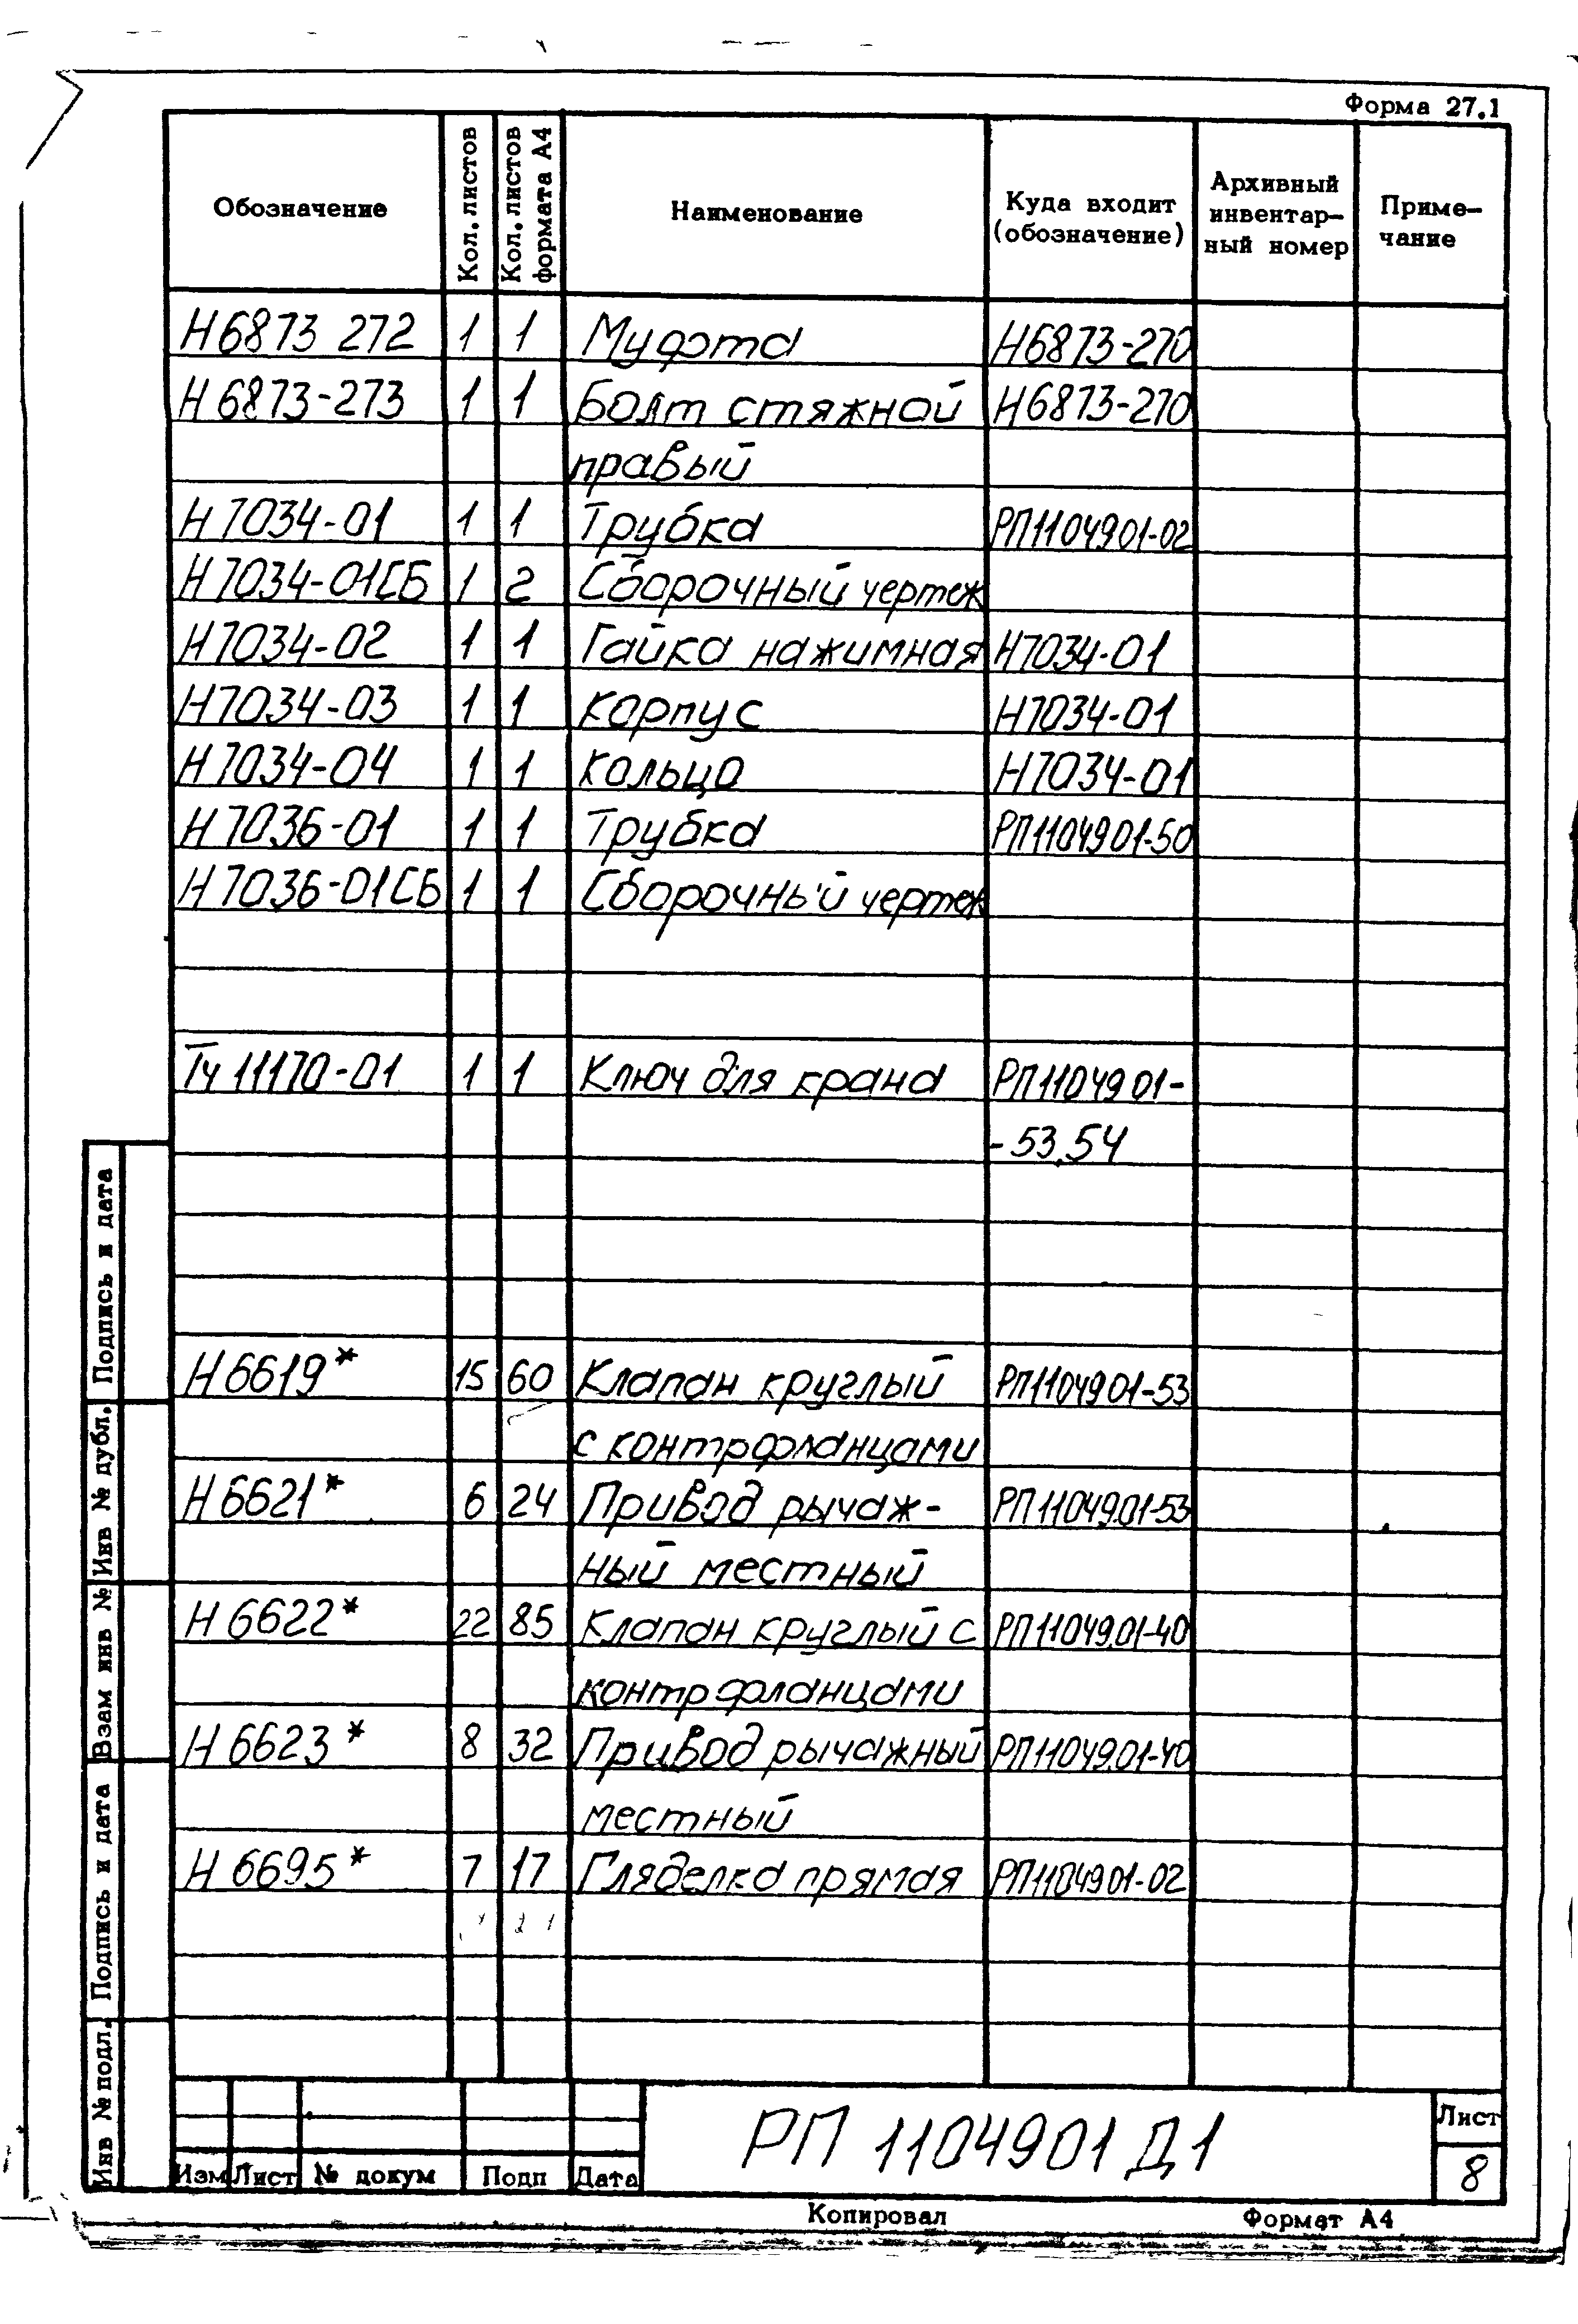 Форма 27.1
Обозначение Кол. листов Кол. листов формата А4 Наименование Куда входит (обозначение) Архивный инвентар- ный номер Приме- чание
Н6873 272 1 1 Муфта Н6873-270
Н6873-273 1 1 Болт стяжной Н6873-270
правый
Н7034-01 1 1 Трубка РП1104901-02
Н7034-01СБ 1 2 Сборочный чертеж
Н7034-02 1 1 Гайка нажимная Н7034-01
Н7034-03 1 1 Корпус Н7034-01
Н7034-04 1 1 Кольцо Н7034-01
Н7036-01 1 1 Трубка РП1104901-50
Н7036-01СБ 1 1 Сборочный чертеж
Тч11170-01 1 1 Ключ для крана РП1104901-
-53,54
Н6619* 15 60 Клапан круглый РП1104901-53
с контрфланцами
Н6621* 6 24 Привод рычаж- РП1104901-53
ный местный
Н6622* 22 85 Клапан круглый с РП1104901-40
контрфланцами
Н6623* 8 32 Привод рычажный РП1104901-40
местный
Н6695* 7 17 Гляделка прямая РП1104901-02
Подпись и дата
Инв № дубл.
Взам инв №
Подпись и дата
Инв № подл.
Изм Лист № докум Подп Дата
РП 1104901 Д1
Лист
8
Копировал Формат А4